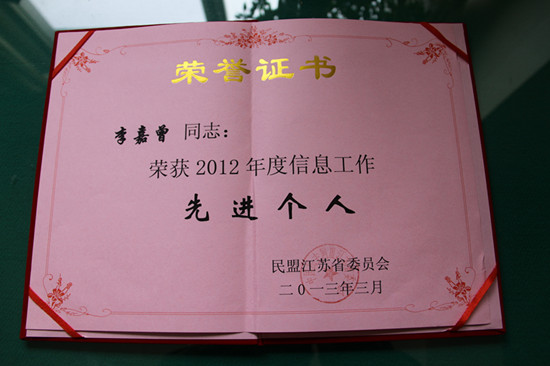 荣誉证书
李嘉曾 同志：
荣获 2012 年度信息工作
先进个人
民盟江苏省委员会
二0一三年三月